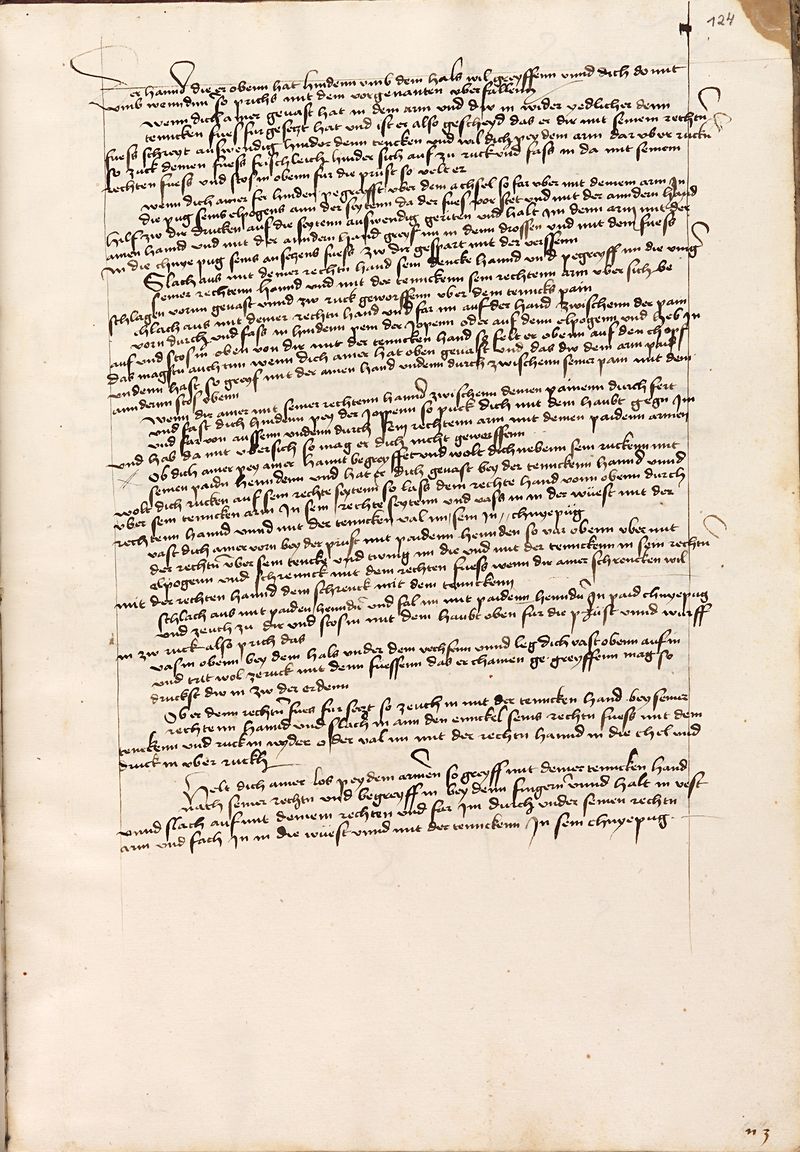 124
er hannd die er obenn hat hindenn umb dem hals wil greyffenn unnd dich do mit
umb wenndnn so prichs mit dem vorgenanten uber fallenn
wenn dich ainer gevast hat in dem arm und dw in wider yedlicher denn
tenncken fues fur gesetzt hat und ist er also geschickt das er dir mit seinem rechtn
fuess schreyt auswendig hinder denn tencken und wil dich pey dem arm dar uber ruckn
so zuck deinen fuess frischleich hinder sich auf zu ruck und fass in da mit seinem
rechten fuess und stos in obenn fur die prust so velt er
wenn dich ainer fer hinden pegreyfft uber dem achsel so far uber mit deinem arm In
die pug seins elpogens ann der seytenn da der fues vor stet und mit der anndern hannd
hilf zw die drucken auf die seytenn auswendig geriten und halt im denn arm mit der
ainen hannd und mit der anndern hannd greyf im in denn drossen und mit dem fuess
In die chnye pug seins aussens fuess zw dir gespart mit der verssenn
Slach aus mit deiner rechtn hand sein dencke hannd und pegreyff im die ving
seiner rechtenn hannd und mit der tennckenn sein rechtenn arm uber sich be
schlagen vorn gevast unnd zw ruck geworffenn uber dem tenncks pain
chlach aus mit deiner rechtn hand und far im auf der hand zwischenn der pain
vorn durch und fass in hindenn pein der Jopenn oder auf denn elpogenn und heb in
auf und stos in oben von dir mit der tenncken hand so felt er obenn auf den chopf
das magstu auch tun wenn dich ainer hat oben gevast und das dw dem arm pauf
undenn hast so greyf mit der ainen hand undenn durch zwischenn seiner pain mit dem
anndernn stos obenn
Wenn dir ainer mit seiner rechtenn hannd zwischenn deinen painenn durch fert
und fast dich hindenn pey der Joppenn so puck dich mit dem haubt gegn Im
und far von aussenn undenn durch sein rechtenn arm mit deinen paidenn armen
und hab da mit ubersich so mag er dich nicht gewerffenn
Ob dich ainer pey ainer hannt begreyffet und wolt dich nebenn sein ruckenn mit
seinen paidn henndenn und hat er dich gevast bey der tennckenn hannd unnd
wolt dich rucken auf sein rechte seytenn so lass dem rechte hand vonn obenn durch
uber sein tenncken arm In sein rechte seytenn und vass in in der wuest mit der
rechtenn hannd unnd mit der tenncken val im sein In chnyepug
vast dich ainer vorn bey der prust mit paidenn hennden so var obenn uber mit
der rechtn uber sein tencke und twing im die und mit der tennckenn in sein rechtn
elpogenn und schrennck mit dem rechten fuess wenn dir ainer schrencken wil
mit der rechten hannd dem schrenck mit dem tennckenn
schlach aus mit paiden henndn und fal im mit paidenn henndn In paid chnyepug
und zeuch zu dir und stos in mit dem haubt oben fur die prust unnd wurff
in zw ruck also prich das
vas in obenn bey dem hals under dem yechsenn unnd leg dich vast obenn auf in
und trit wol zeruck mit denn fuessenn das er chainen ge greyffenn mag so
druckst dw in zw der erdenn
Ob er denn rechtn fues fur setzt so zeuch in mit der tenncken hand bey seiner
rechtenn hannd und slach in ann den ennckel seins rechtn fuess mit dem
tenckenn und ruck in wyder oder val im mit der rechtn hannd in die chel und
druck in uber ruckh
Helt dich ainer los pey dem armen so greyff mit deiner tenncken hand
nach seiner rechtn und begreyff in bey denn fingern unnd halt in vest
unnd slach auf mit deinem rechten und far Im durch under seinen rechtn
arm und fach In in die wuest unnd mit der tennckenn In sein chnyepug
n 3